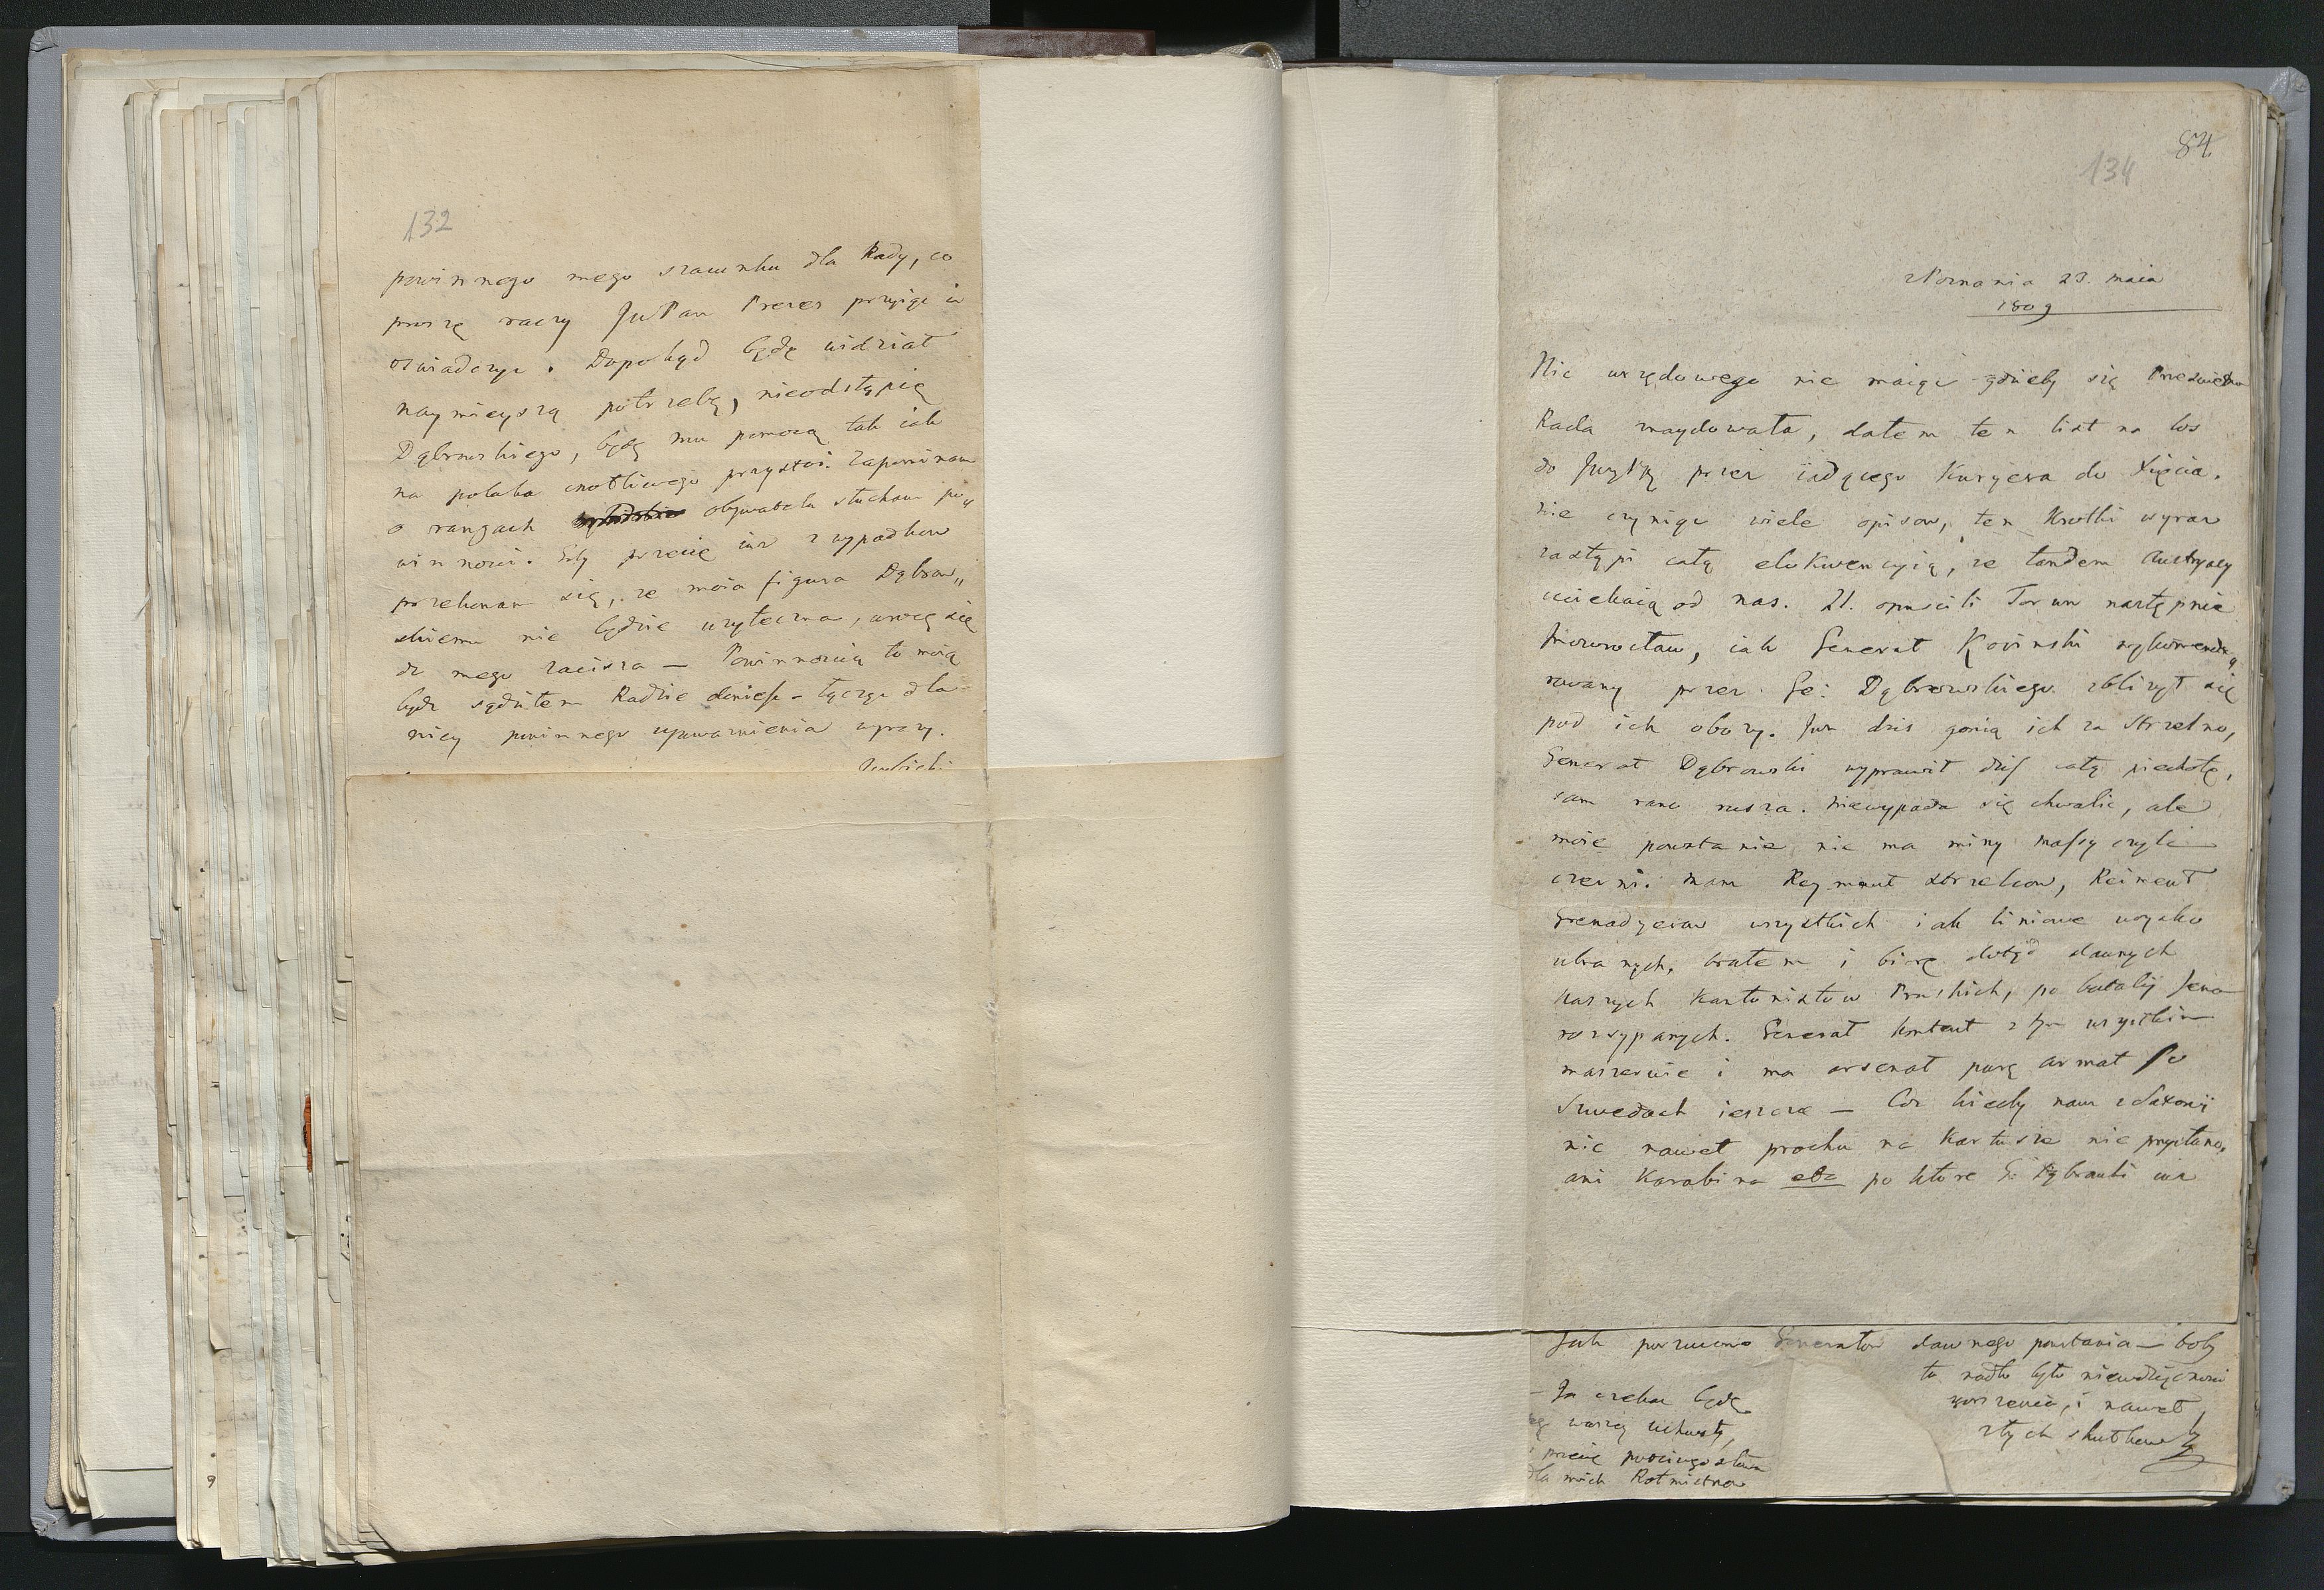 132
powinnego mego szacunku dla Rady, co
proszę raczy JW Pan Prezes przyiąć i
oświadczyć. Dopokąd będę widział
naymnieyszą potrzebę, nieodstąpię
Dąbrowskiego, będę mu pomocą tak iak
na polaka cnotliwego przystoi. Zapominam
o rangach obywatela słucham po„
winności. Gdy przecię iuż z wypadków
przekonam się, że moia figura Dąbrow„
skiemu nie będzie użyteczna, uwrę się
do mego zacisza — Powinnością to moią
będzie Radzie doniesć - łączę dla
niey powinnego upoważnienia wyrazy.
84
134
z Poznania 23. maia
1809
Nic urzędowego nie maiąc gdzieby się Prześwietna
Rada znaydowała, dałem ten list na los
do przez iadącego Kuryera do Xięcia.
nie czyniąc wiele opisow, ten krotki wyraz
zastąpi całą elokwencyią, że tandem Austryacy
uciekaią od nas. 21. opuścili Torun następnie
Jnowrocław, iak Generał Kosinski wykomende„
rowany przez Ge: Dąbrowskiego zbliżył się
pod ich obozy. Juz dzis gonią ich za Strzelno,
Generał Dąbrowski wyprawił dziś całą piechotę,
sam rano rusza. niewypada się chwalić, ale
moie powstanie nie ma miny massy czyli
czerni. mam Regiment strzelcow, Reiment
Grenadyerow wszystkich iak liniowe woysko
ubranych, brałem i biorę dotąd dawnych
naszych Kantonistow Pruskich, po batalij Jena
rozsypanych. Generał kontent z tym wszystkim
maszeruie i ma arsenał parę armat po
Szwedach ieszcze — Coz kiedy nam z Saxonij
nic nawet prochu na Kartusze nie przysłano,
ani Karabina etc po ktore G: Dąbrowski iuz
Jak porzucono Generałow dawnego powstania — boby
to nadto było niewdzięcznosci
zgorszenia, i nawet
złych skutkow
- Ja czekac będę
waszey uchwały,
przecię
dla moich Rotmistrzow